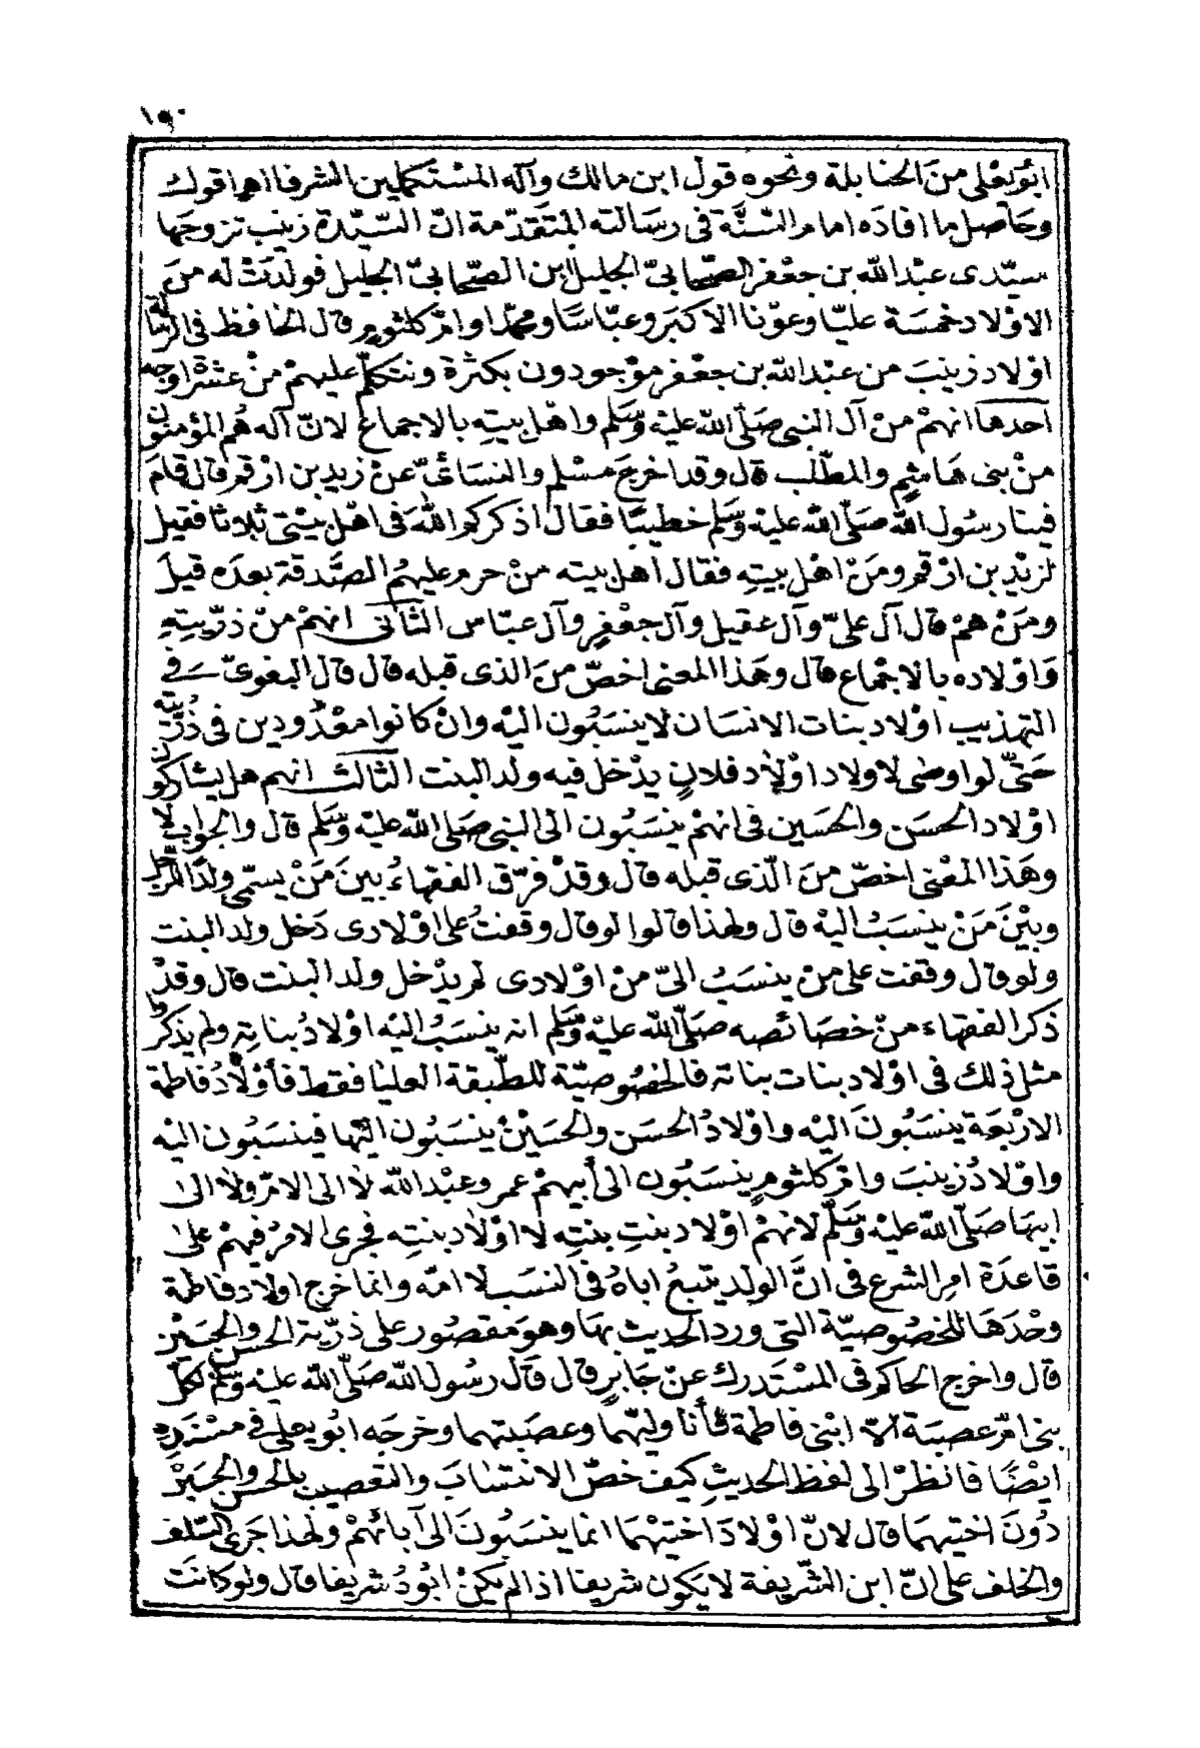 ١٩٠
ابو يعلى من الحنابلة ونحوه قول ابن مالك وآله المستكملين الشرفا اهـ اقول
وحاصل ما افاده امام السنّة فى رسالته المتقدّمة انّ السّيّدة زينب تزوجها
سيّدى عبد الله بن جعفر الصّحابىّ الجليل ابن الصّحابىّ الجليل فولدت له من
الاولاد خمسة عليّا وعونا الاكبر وعبّاسا ومحمّدا وامّ كلثوم قال الحافظ فى الرسالة
اولاد زينب من عبد الله بن جعفر موجودون بكثرة ونتكلّم عليهم من عشرة اوجه
احدها انهم من آل النبى صلّى الله عليه وسلّم واهل بيته بالاجماع لانّ آله هم المؤمنون
من بنى هاشم والمطّلب قال وقد اخرج مسلم والنسائىّ عن زيد بن ارقم قال قام
فينا رسول الله صلّى الله عليه وسلم خطيبا فقال اذكركم الله فى اهل بيتى ثلاثا فقيل
لزيد بن ارقم ومن اهل بيته فقال اهل بيته من حرم عليهم الصّدقة بعده قيل
ومن هم قال آل علىّ وآل عقيل وآل جعفر وآل عبّاس الثانى انهم من ذرّيته
واولاده بالاجماع قال وهذا المعنى اخصّ من الذى قبله قال قال البغوىّ فى
التهذيب اولاد بنات الانسان لا ينسبون اليه وان كانوا معدودين فى ذرّيته
حتّى لو اوصى لاولاد اولاد فلان يدخل فيه ولد البنت الثالث انهم هل يشاركون
اولاد الحسن والحسين فى انهم ينسبون الى النبى صلى الله عليه وسلم قال والجواب لا
وهذا المعنى اخصّ من الّذى قبله قال وقد فرّق الفقهاء بين من يسمّى ولدا للرجل
وبين من ينسب اليه قال ولهذا قالوا لو قال وقفت على اولادى دخل ولد البنت
ولو قال وقفت على من ينسب الىّ من اولادى لم يدخل ولد البنت قال وقد
ذكر الفقهاء من خصائصه صلّى الله عليه وسلم انه ينسب اليه اولاد بناته ولم يذكروا
مثل ذلك فى اولاد بنات بناته فالخصوصيّة للطّبقة العليا فقط فأولاد فاطمة
الاربعة ينسبون اليه واولاد الحسن والحسين ينسبون اليهما فينسبون اليه
واولاد زينب وامّ كلثوم ينسبون الى أبيهم عمر وعبد الله لا الى الامّ ولا الى
ابيها صلّى الله عليه وسلّم لانهم اولاد بنت بنته لا اولاد بنته فجرى الامر فيهم على
قاعدة امر الشرع فى انّ الولد يتبع اباه فى النسب لا امّه وانما خرج اولاد فاطمة
وحدها للخصوصيّة التى ورد الحديث بها وهو مقصور على ذرّية الحسن والحسين
قال واخرج الحاكم فى المستدرك عن جابر قال قال رسول الله صلّى الله عليه وسلم لكلّ
بنى امّ عصبة الاّ ابنى فاطمة فأنا وليّهما وعصبتهما وخرجه ابو يعلى فى مسنده
ايضا فانظر الى لفظ الحديث كيف خصّ الانتساب والتعصيب بالحسن والحسين
دون اختيهما قال لانّ اولاد اختيهما انما ينسبون الى آبائهم ولهذا جرى السّلف
والخلف على انّ ابن الشّريفة لا يكون شريفا اذا لم يكن ابوه شريفا قال ولو كانت